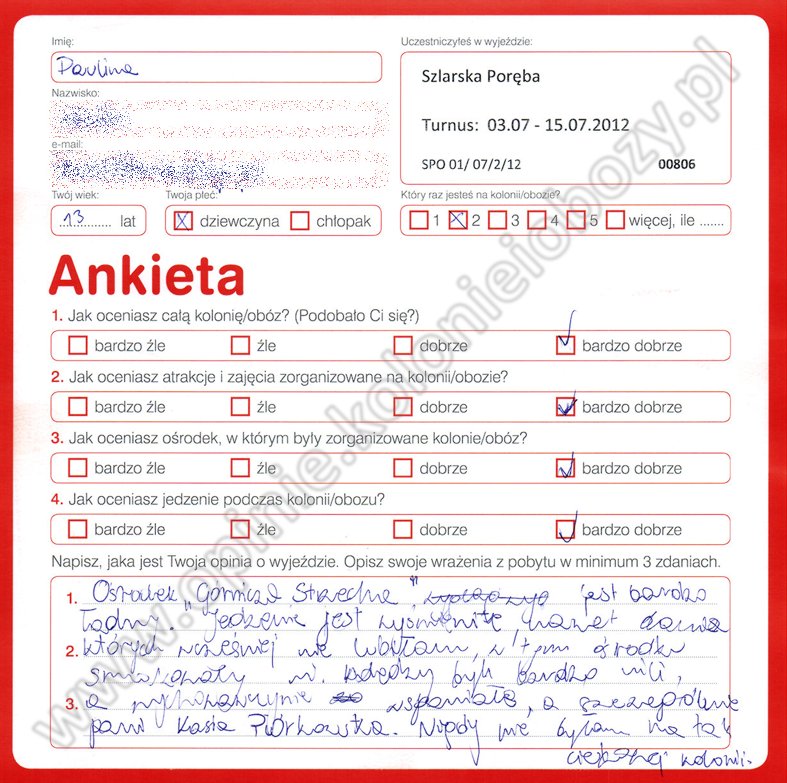 Imię:
Paulina
Uczestniczyłeś w wyjeździe:
Szlarska Poręba
Turnus: 03.07 - 15.07.2012
SPO 01/ 07/2/12 00806
Nazwisko:
e-mail:
Twój wiek:
13 lat
Twoja płeć:
X dziewczyna chłopak
Który raz jesteś na kolonii/obozie?
1 X 2 3 4 5 więcej, ile .......
Ankieta
1. Jak oceniasz całą kolonię/obóz? (Podobało Ci się?)
bardzo źle źle dobrze bardzo dobrze
2. Jak oceniasz atrakcje i zajęcia zorganizowane na kolonii/obozie?
bardzo źle źle dobrze bardzo dobrze
3. Jak oceniasz ośrodek, w którym były zorganizowane kolonie/obóz?
bardzo źle źle dobrze bardzo dobrze
4. Jak oceniasz jedzenie podczas kolonii/obozu?
bardzo źle źle dobrze bardzo dobrze
Napisz, jaka jest Twoja opinia o wyjeździe. Opisz swoje wrażenia z pobytu w minimum 3 zdaniach.
1. Ośrodek "Górnicza Strzecha" jest bardzo
ładny. Jedzenie jest wyśmienite nawet dania
2. których wcześniej nie lubiłam, w tym ośrodku
smakowały mi. byli bardzo mili,
3. a wychowawczynie wspaniałe, a szczególnie
pani Kasia Piórkowska. Nigdy nie byłam na tak
kolonii.
www.opinie.kolonieiobozy.pl